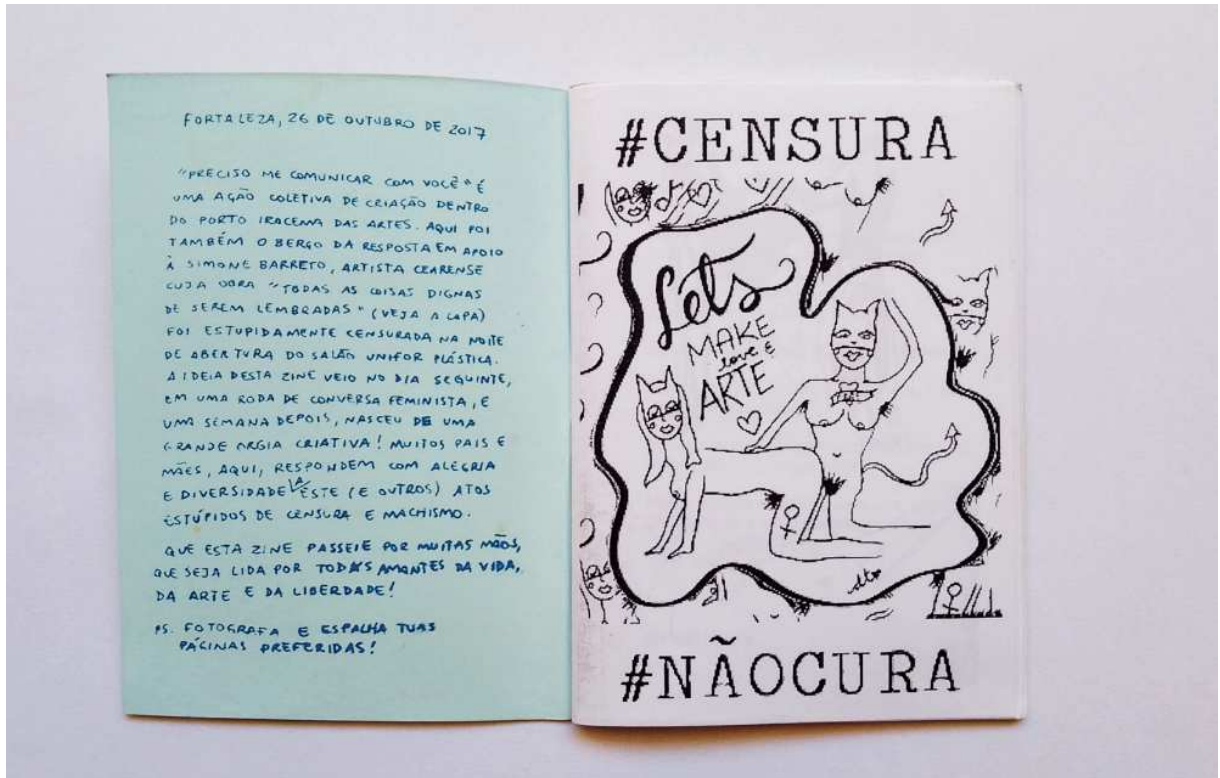 FORTALEZA, 26 DE OUTUBRO DE 2017
"PRECISO ME COMUNICAR COM VOCÊ" É
UMA AÇÃO COLETIVA DE CRIAÇÃO DENTRO
DO PORTO IRACEMA DAS ARTES. AQUI FOI
TAMBÉM O BERÇO DA RESPOSTA EM APOIO
À SIMONE BARRETO, ARTISTA CEARENSE
CUJA OBRA "TODAS AS COISAS DIGNAS
DE SEREM LEMBRADAS" (VEJA A CAPA)
FOI ESTUPIDAMENTE CENSURADA NA NOITE
DE ABERTURA DO SALÃO UNIFOR PLÁSTICA.
A IDEIA DESTA ZINE VEIO NO DIA SEGUINTE,
EM UMA RODA DE CONVERSA FEMINISTA, E
UMA SEMANA DEPOIS, NASCEU DE UMA
GRANDE ORGIA CRIATIVA! MUITOS PAIS E
MÃES, AQUI, RESPONDEM COM ALEGRIA
E DIVERSIDADE A ESTE (E OUTROS) ATOS
ESTÚPIDOS DE CENSURA E MACHISMO.
QUE ESTA ZINE PASSEIE POR MUITAS MÃOS,
QUE SEJA LIDA POR TODAS AMANTES DA VIDA,
DA ARTE E DA LIBERDADE!
PS. FOTOGRAFA E ESPALHA TUAS
PÁGINAS PREFERIDAS!
#CENSURA
Lets
MAKE
love E
ARTE
#NÃOCURA